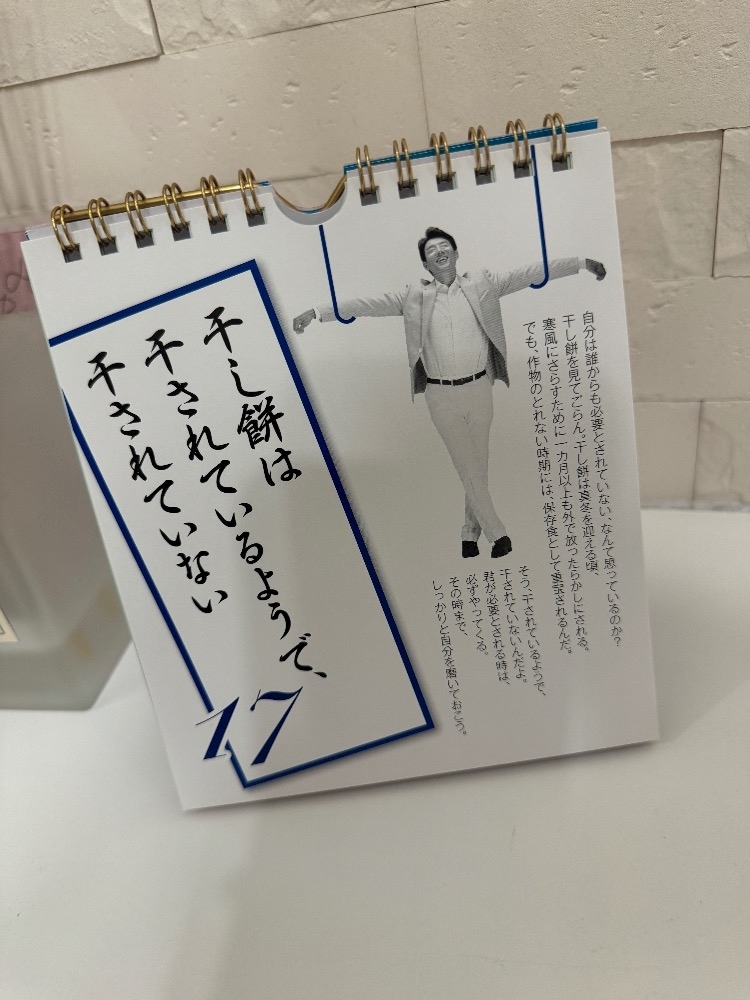 干し餅は
干されているようで、
干されていない
17
自分は誰からも必要とされていない、なんて思っているのか?
干し餅を見てごらん。干し餅は真冬を迎える頃、
寒風にさらすために一カ月以上も外で放ったらかしにされる。
でも、作物のとれない時期には、保存食として重宝されるんだ。
そう、干されているようで、
干されていないんだよ。
君が必要とされる時は、
必ずやってくる。
その時まで、
しっかりと自分を磨いておこう。